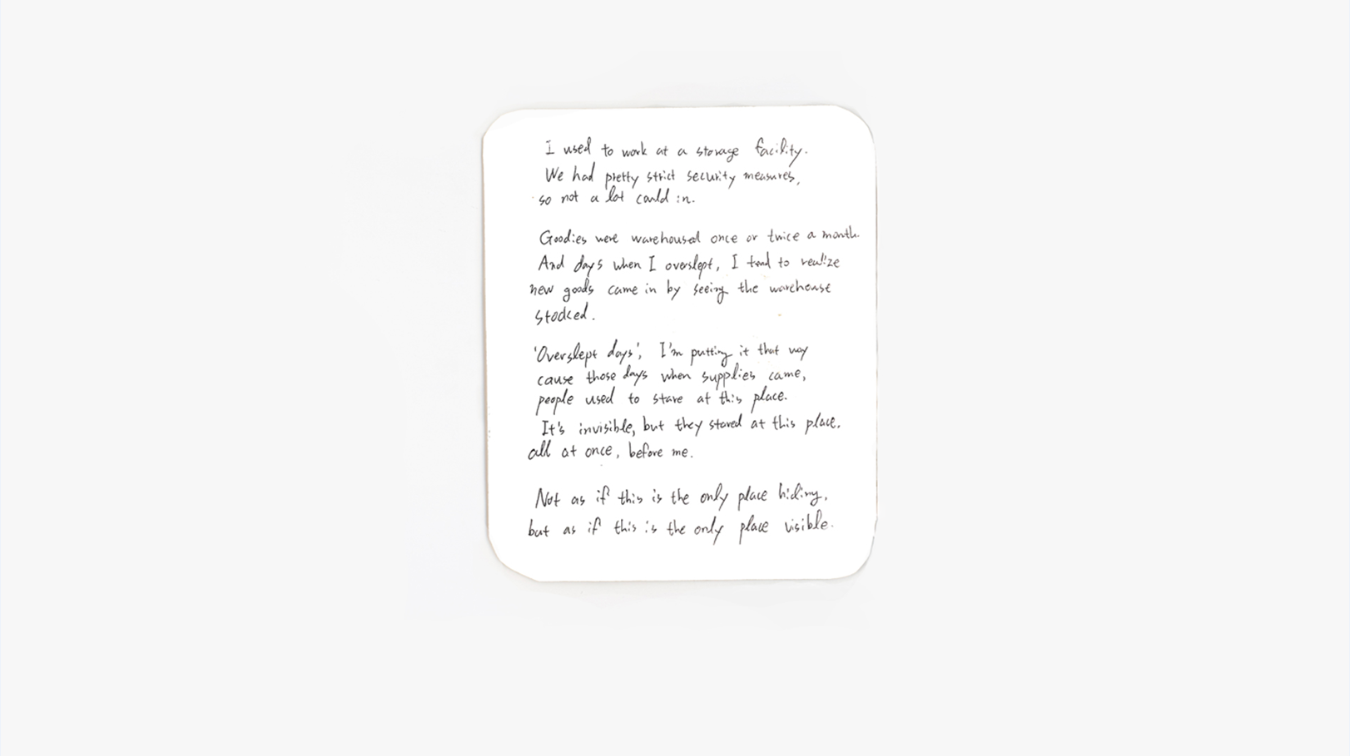 I used to work at a storage facility.
We had pretty strict security measures,
so not a lot could in.
Goodies were warehoused once or twice a month.
And days when I overslept, I tend to realize
new goods came in by seeing the warehouse
stocked.
'Overslept days', I'm putting it that way
cause those days when supplies came,
people used to stare at this place.
It's invisible, but they stared at this place.
all at once, before me.
Not as if this is the only place hiding,
but as if this is the only place visible.